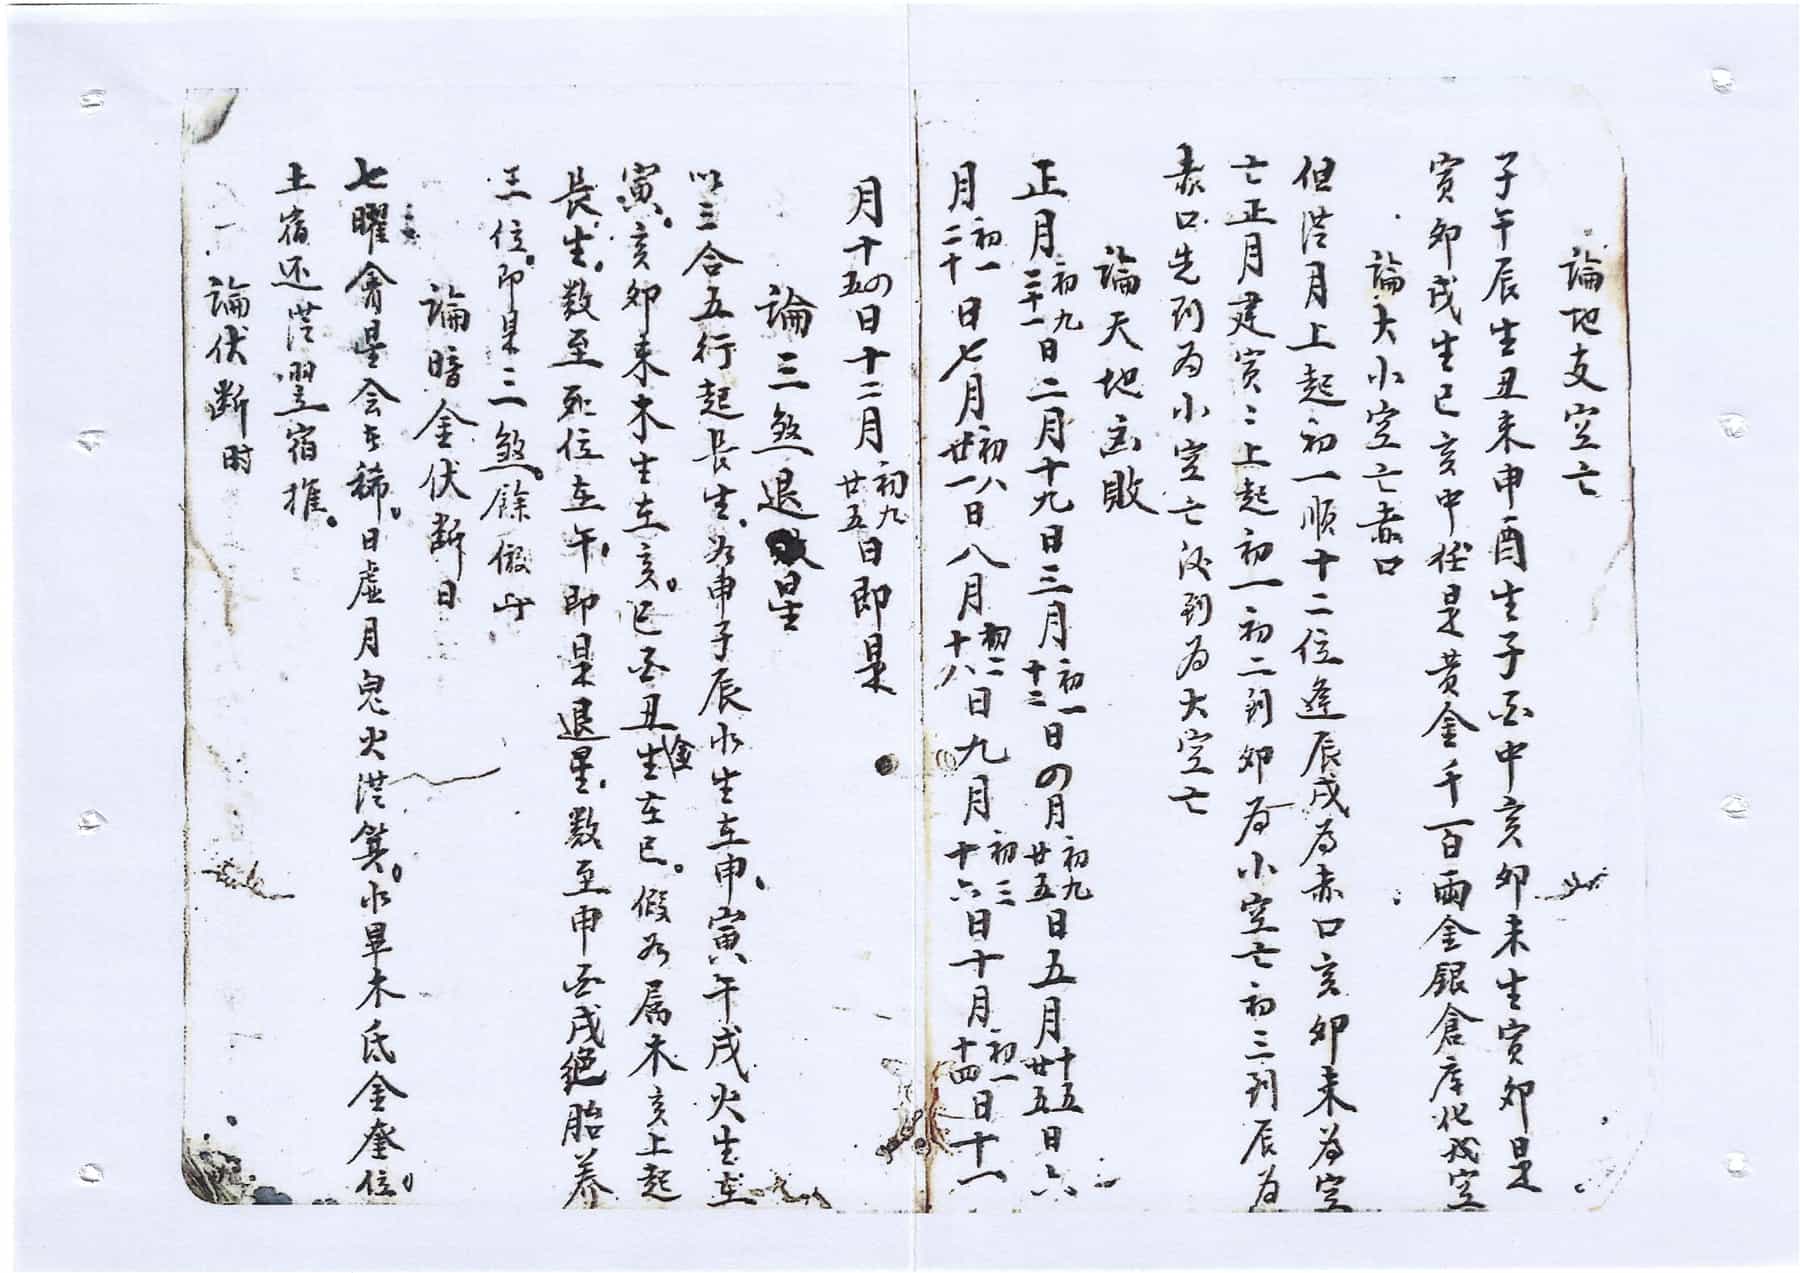 論地支空亡
子午辰生丑未申酉生子子酉中亥卯未生寅卯是
寅卯戌生巳亥中任是黄金千百兩金銀倉库化成空
論大小空亡赤口
但從月上起初一順十二位逢辰戌为赤口亥卯未为空
亡正月建寅〻上起初一初二到卯为小空亡初三到辰为
赤口先到为小空亡後到为大空亡
論天地凶敗
正月初九二十一日二月十九日三月初一十二日四月初九廿五日五月十五廿五日六
月初一二十日七月初八廿一日八月初二十八日九月初三十六日十月初一十四日十一
月十四五日十二月初九廿五日即是
論三煞退星
以三合五行起長生、如申子辰水生在申、寅午戌火生在
寅。亥卯未木生在亥。巳酉丑金生在巳。假如属木亥上起
長生。数至死位在午、即是退星、数至申酉戌絶胎养
三位。即是三煞。餘倣此
論暗金伏断日
七曜會星会者稀。日虚月鬼火從箕。水畢木氐金奎位。
土宿还從翌宿推。
論伏断时